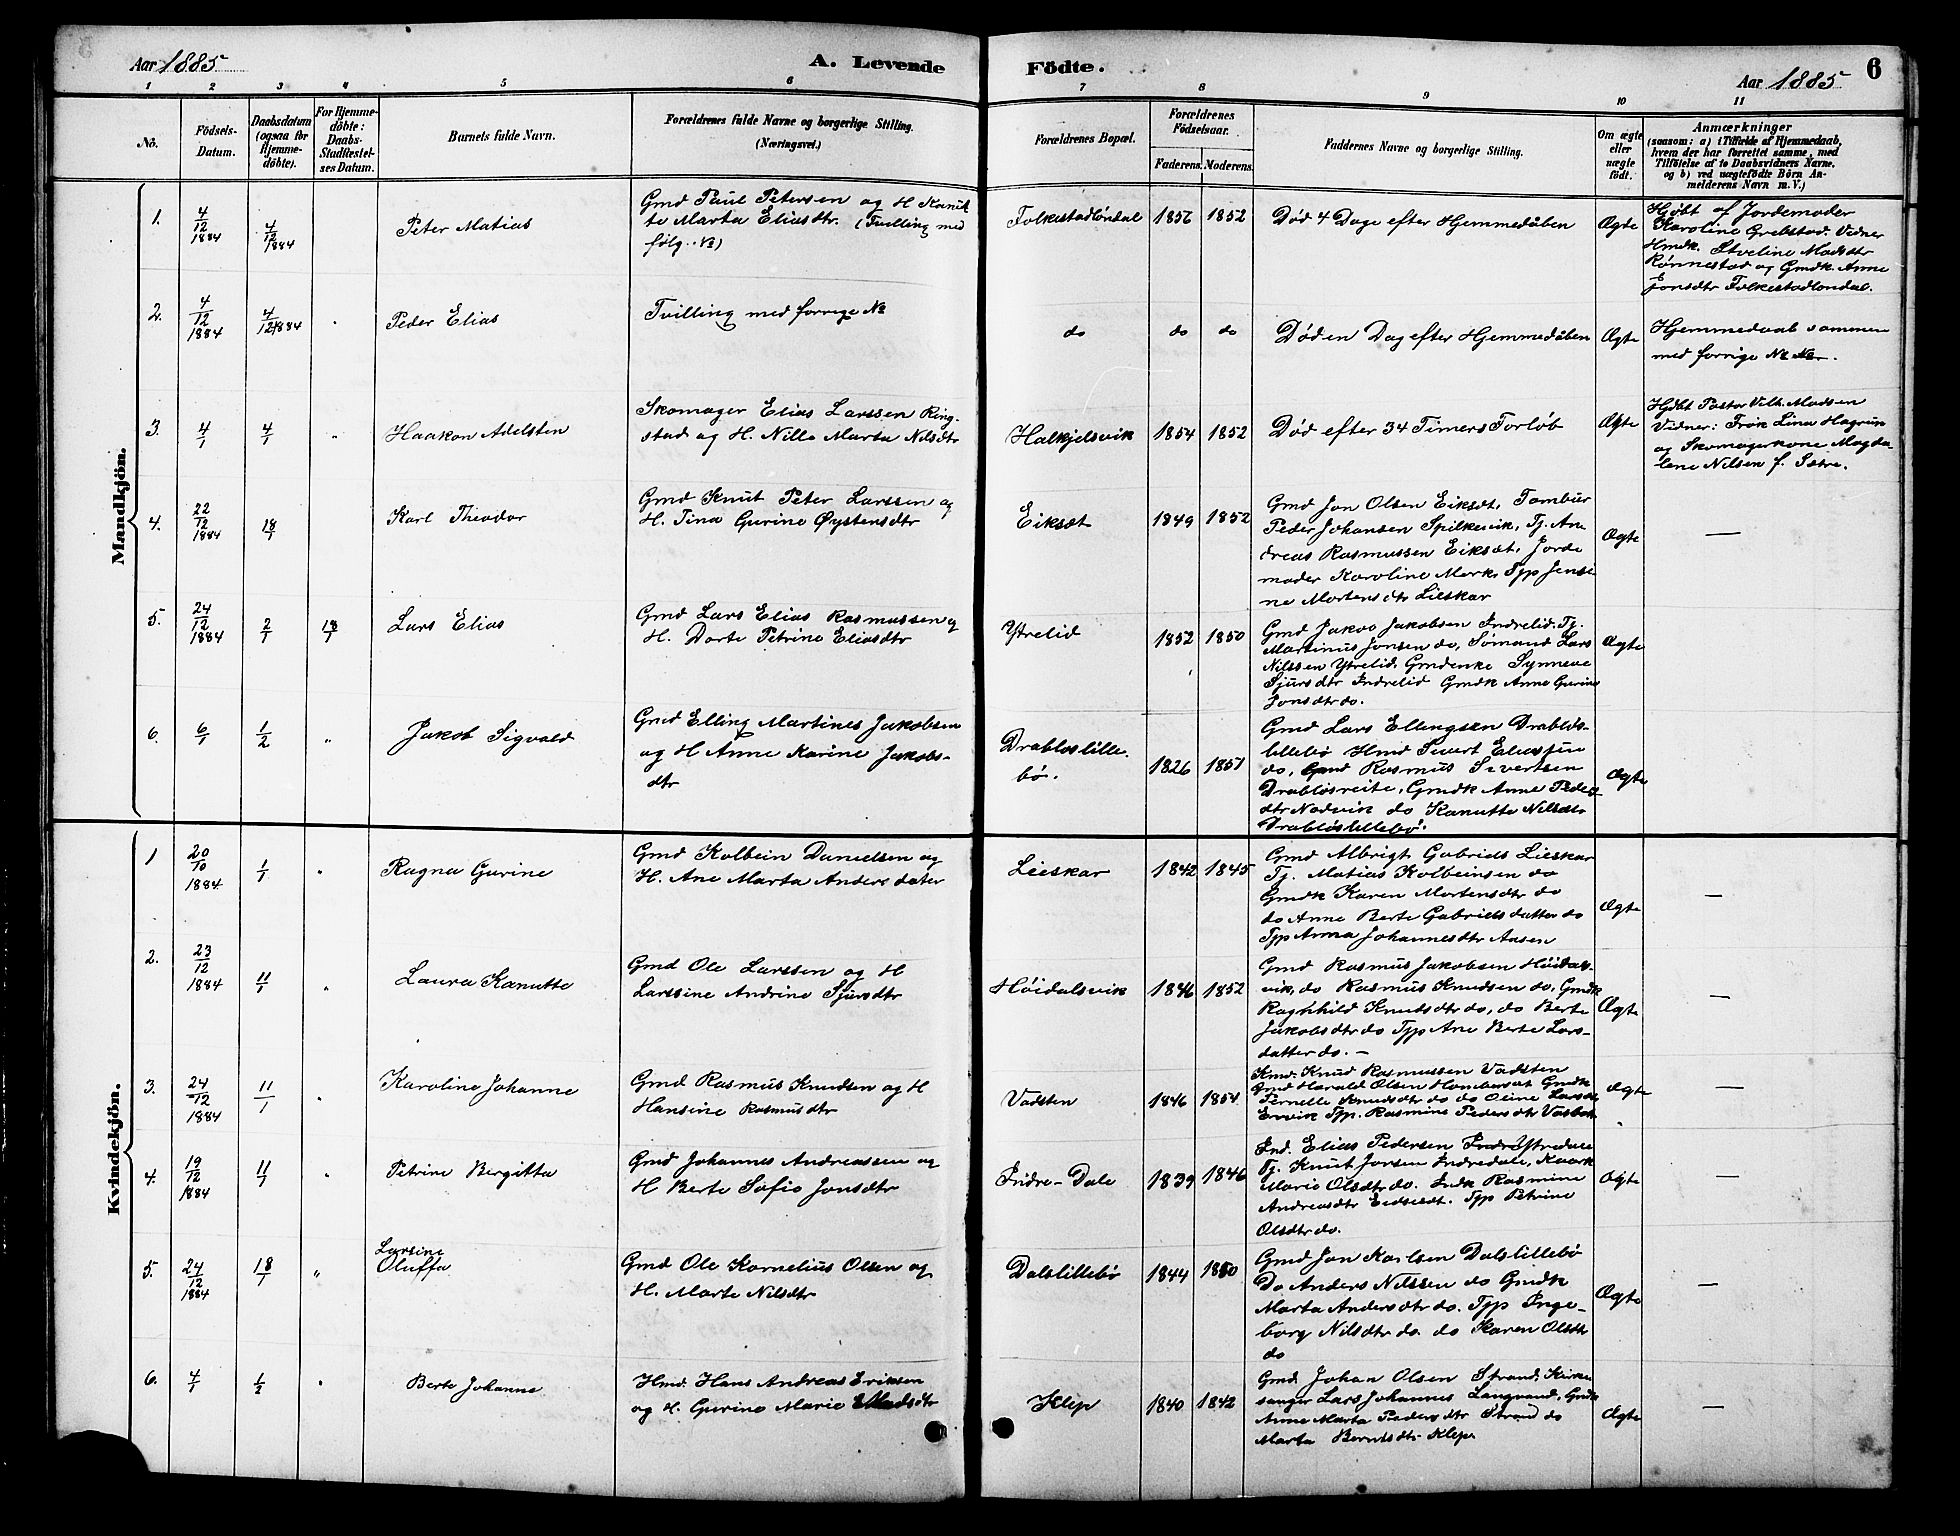 Aar 1885
A. Levende
Födte.
Aar 1885
6
1 2 3 4 5 6 7 8 9 10 11
No.
Födsels-Datum.
Daabsdatum (ogsaa for Hjemmedöbte).
For Hjemmedöbte: Daabs-Stadfæstelses Datum.
Barnets fulde Navn.
Forældrenes fulde Navne og borgerlige Stilling.
(Næringsvei.)
Forældrenes Bopæl.
Forældrenes Födselsaar.
Faderens. Moderens.
Faddernes Navne og borgerlige Stilling.
Om ægte eller uægte födt.
Anmærkninger
(saasom: a) i Tilfælde af Hjemmedaab,
hvem der har forrettet samme, med
Tilföielse af to Daabsvidners Navne,
og b) ved uægtefödte Börn An-
melderens Navn m. V.)
Mandkjön.
1. 4/12 1884 4/12 1884 Peter Matias
Gmd Paul Petersen og H Kanut
te Marta Eliasdtr. (Tvilling med
følg. No)
Folkestadlöndal 1856 1852
Död 4 Dage efter Hjemmedåben
Ægte
Hjöbt af Jordemoder
Karoline Grebstad. Vidner
Hmdk. Itveline Madsdtr
Rönnestad og Gmdk. Anne
Jonsdtr Folkestadlondal.
2. 4/12 1884 4/12 1884 " Peder Elias
Tvilling med forrige No
do do do
Död en Dag efter Hjemmedåben
Ægte
Hjemmedaab sammen
med forrige No No.
3. 4/1 4/1 " Haakon Adelsten
Skomager Elias Larssen Ring-
stad og H. Nille Marta Nilsdtr
Halkjelsvik 1854 1852
Död efter 34 Timers Forlöb
Ægte
Hjdbt Pastor Vilh. Madsen
Vidner: Frøk Lina Hagrun
og Skomagerkone Magda-
lene Nilsen f. Sætre.
4. 22/12 1884 18/1 Karl Theodor
Gmd Knut Peter Larssen og
H. Tina Gurine Øystensdtr
Eiksæt 1849 1852
Gmd Jon Olsen Eiksæt, Tambur
Peder Johansen Spilkevik, Tj. An
dreas Rasmussen Eiksæt, Jorde
moder Karoline Mork, Tpp Jensi-
ne Mortensdtr Lieskar
Ægte —
5. 24/12 1884 2/1 18/1 Lars Elias
Gmd Lars Elias Rasmussen og
H. Dorte Petrine Eliasdtr
Ytrelid 1852 1850
Gmd Jakob Jakobsen Indrelid. Tj.
Martinus Jonsen do, Sömand Lars
Nilssen Ytrelid, Gmdenke Synneve
Sjursdtr Indrelid Gmdk Anne Gurine
Jonsdtr do.
Ægte
6. 6/1 1/2 " Jakob Sigvald
Gmd Elling Martines Jakobsen
og H Anne Karine Jakobs-
dtr
Drabloslille-
bö. 1826 1851
Gmd Lars Ellingsen Drablös-
lillebö Hmd Sivert Eliassen
do, Gmd Rasmus Sivertsen
Drablösreite, Gmdk Anne Peders-
dtr Nodvik do Kanutte Nilsdtr
Drablöslillebö.
Ægte
Kvindekjön.
1 20/10 1884 1/1 " Ragna Gurine
Gmd Kolbein Danielsen og
H. Ane Marta Anders dater
Lieskar 1842 1845
Gmd Albrigt Gabriels Lieskar
Tj. Matias Kolbeinsen do
Gmdk Karen Mortensdtr do
do Anne Berte Gabrielsdatter do
Tpp Anna Johannesdtr Aasen
Ægte —
2. 23/12 1884 11/1 " Laura Kanutte
Gmd Ole Larssen og H
Larssine Andrine Sjursdtr
Höidalsvik 1846 1852
Gmd Rasmus Jakobsen Höidals-
vik, do Rasmus Knudsen do, Gmdk
Raghhild Knudsdtr do, do Berte
Jakobsdtr do Tpp Ane Berte Lars-
datter do. —
Ægte —
3. 24/12 1884 11/1 " Karoline Johanne
Gmd Rasmus Knudsen og H
Hansine Rasmusdtr
Vadsten 1846 1854
Kmd. Knud Rasmussen Vadsten
Gmd Harald Olsen Homberset Gmdk
Pernelle Knudsdtr do do Oline Larsdtr
Ervik Tpp. Rasmine Pedersdtr Vasbak
Ægte —
4. 19/12 1884 11/1 " Petrine Bergitta
Gmd Johannes Andreassen og
H Berte Sofie Jonsdtr
Indre-Dale 1839 1846
Ind. Elias Pedersen Indre Ytredale
Tj. Knut Jonsen Indredale, Kaark
Marie Olsdtr do. Indk Rasmine
Andreasdtr Eidset. Tpp Petrine
Olsdtr do.
Ægte —
5. 24/12 1884 18/1 " Larsine
Oluffa
Gmd Ole Kornelius Olsen og
H. Marte Nilsdtr
Dalslillebö 1844 1850
Gmd Jon Karlsen Dalslillebö
Do Anders Nilssen do Gmdk
Marta Andersdtr do. Tpp Inge-
borg Nilsdtr do. do Karen Olsdtr
do
Ægte —
6. 4/1 1/2 " Berte Johanne
Hmd. Hans Andreas Eriksen
og H. Gurine Marie Madsdtr
Klep 1840 1842
Gmd. Johan Olsen Strand, Kirke
sanger Lars Johannes Langvand, Gmdk
Anne Marta Pedersdtr Strand do
Marta Berntsdtr Klep.
Ægte —